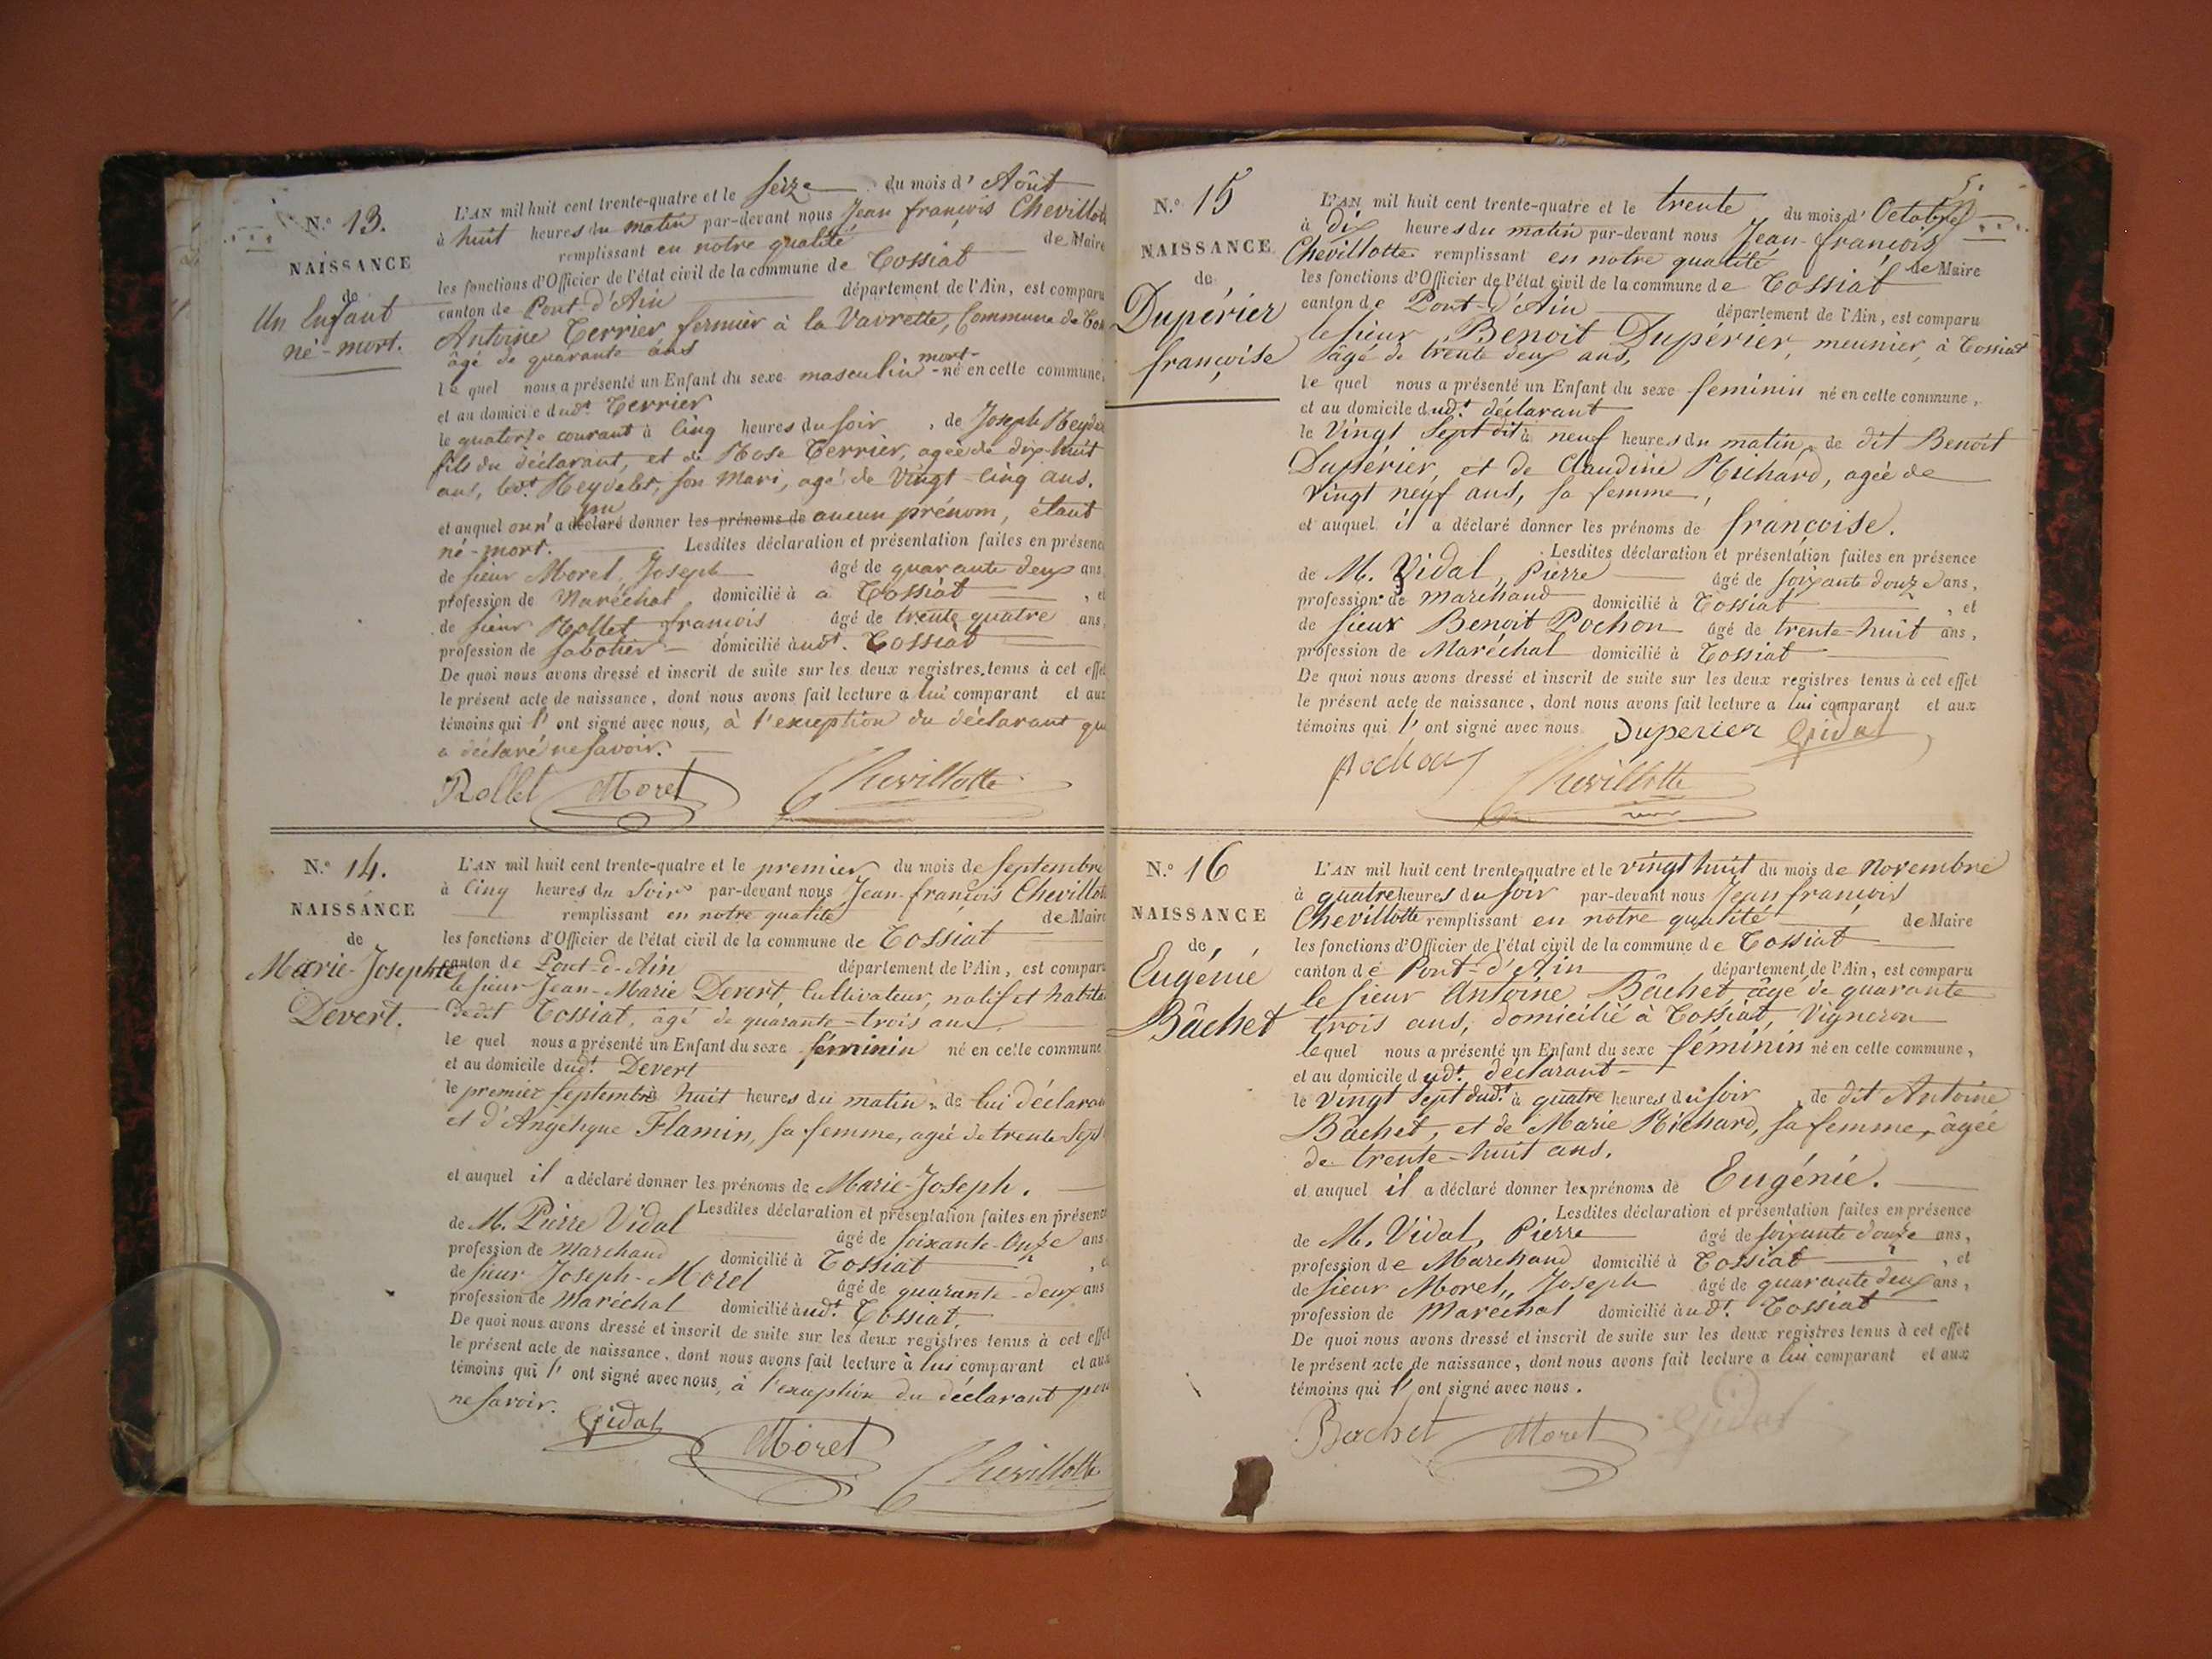 N.º 13.
NAISSANCE
de
Un Enfant
né-mort.
L'AN mil huit cent trente-quatre et le seize du mois d' Août
à huit heures du matin par-devant nous Jean françois Chevillot
remplissant en notre qualité de Maire
les fonctions d'Officier de l'état civil de la commune de Tossiat
canton de Pont-d'Ain département de l'Ain, est comparu
Antoine Terrier fermier à la Vavrette, Commune de
âgé de quarante ans
le quel nous a présenté un Enfant du sexe masculin mort-né en cette commune,
et au domicile dudt. Terrier
le quatorze courant à cinq heures du soir, de Joseph
fils du déclarant, et de Rose Terrier, agée de dix-huit
ans, son Mari, agé de Vingt-cinq ans.
et auquel on n'a déclaré donner les prénoms de aucun prénom, étant
né-mort. Lesdites déclaration et présentation faites en présence
de sieur Morel, Joseph âgé de quarante deux ans
profession de Maréchal domicilié à à Tossiat, et
de sieur Rollet françois âgé de trente quatre ans,
profession de sabotier domicilié àudt. Tossiat
De quoi nous avons dressé et inscrit de suite sur les deux registres tenus à cet effet
le présent acte de naissance, dont nous avons fait lecture a lui comparant et aux
témoins qui l' ont signé avec nous, à l'exception du déclarant qui
a déclaré ne savoir.
Rollet Morel Chevillotte
N.º 14.
NAISSANCE
de
Marie-Josephte
Devert.
L'AN mil huit cent trente-quatre et le premier du mois de septembre
à Cinq heures du Soir par-devant nous Jean-françois Chevillott
remplissant en notre qualité de Maire
les fonctions d'Officier de l'état civil de la commune de Tossiat
canton de Pont-d'Ain département de l'Ain, est comparu
le sieur Jean-Marie Devert, Cultivateur, natif et habita
dudt Tossiat, âgé de quarante-trois ans,
le quel nous a présenté un Enfant du sexe féminin né en cette commune
et au domicile dudt. Devert
le premier septembre à huit heures du matin, de lui déclarant
et d'Angélique Flamin, sa femme, agée de trente Sept
et auquel il a déclaré donner les prénoms de Marie-Joseph.
Lesdites déclaration et présentation faites en présence
de M. Pierre Vidal âgé de soixante-onze ans
profession de Marchand domicilié à Tossiat
de sieur Joseph-Morel âgé de quarante-deux ans
profession de Maréchal domicilié àudt. Tossiat.
De quoi nous avons dressé et inscrit de suite sur les deux registres tenus à cet effet
le présent acte de naissance, dont nous avons fait lecture à lui comparant et aux
témoins qui l' ont signé avec nous, à l'exception du déclarant pour
ne savoir.
Vidal Morel Chevillotte
5.
N.º 15
NAISSANCE
de
Dupérier
françoise
L'AN mil huit cent trente-quatre et le trente du mois d' Octobre
à dix heures du matin par-devant nous Jean-françois
Chevillotte remplissant en notre qualité de Maire
les fonctions d'Officier de l'état civil de la commune de Tossiat
canton de Pont-d'Ain département de l'Ain, est comparu
le sieur Benoit Dupérier, meunier, à Tossiat
âgé de trente deux ans,
le quel nous a présenté un Enfant du sexe feminin né en cette commune,
et au domicile dudt. déclarant
le Vingt Sept dit à neuf heures du matin, de dit Benoit
Dupérier, et de Claudine Richard, agée de
vingt neuf ans, sa femme,
et auquel il a déclaré donner les prénoms de françoise.
Lesdites déclaration et présentation faites en présence
de M. Vidal, Pierre âgé de soixante douze ans,
profession de marchand domicilié à Tossiat, et
de sieur Benoit Pochon âgé de trente-huit ans,
profession de Maréchal domicilié à Tossiat
De quoi nous avons dressé et inscrit de suite sur les deux registres tenus à cet effet
le présent acte de naissance, dont nous avons fait lecture a lui comparant et aux
témoins qui l' ont signé avec nous. Duperier Vidal
pochon Chevillotte
N.º 16
NAISSANCE
de
Eugénie
Bâchet
L'AN mil huit cent trente-quatre et le vingt huit du mois de Novembre
à quatre heures du soir par-devant nous Jean françois
Chevillotte remplissant en notre qualité de Maire
les fonctions d'Officier de l'état civil de la commune de Tossiat
canton de Pont-d'Ain département de l'Ain, est comparu
le sieur Antoine Bâchet, âgé de quarante
trois ans, domicilié à Tossiat, Vigneron
le quel nous a présenté un Enfant du sexe féminin né en cette commune,
et au domicile dudt. déclarant
le Vingt Sept dudt. à quatre heures du soir, de dit Antoine
Bâchet, et de Marie Richard, sa femme, âgée
de trente-huit ans.
et auquel il a déclaré donner les prénoms de Eugénie.
Lesdites déclaration et présentation faites en présence
de M. Vidal, Pierre âgé de soixante douze ans,
profession de Marchand domicilié à Tossiat, et
de sieur Morel, Joseph âgé de quarante deux ans,
profession de Maréchal domicilié àudt. Tossiat
De quoi nous avons dressé et inscrit de suite sur les deux registres tenus à cet effet
le présent acte de naissance, dont nous avons fait lecture a lui comparant et aux
témoins qui l' ont signé avec nous.
Bachet Morel Vidal